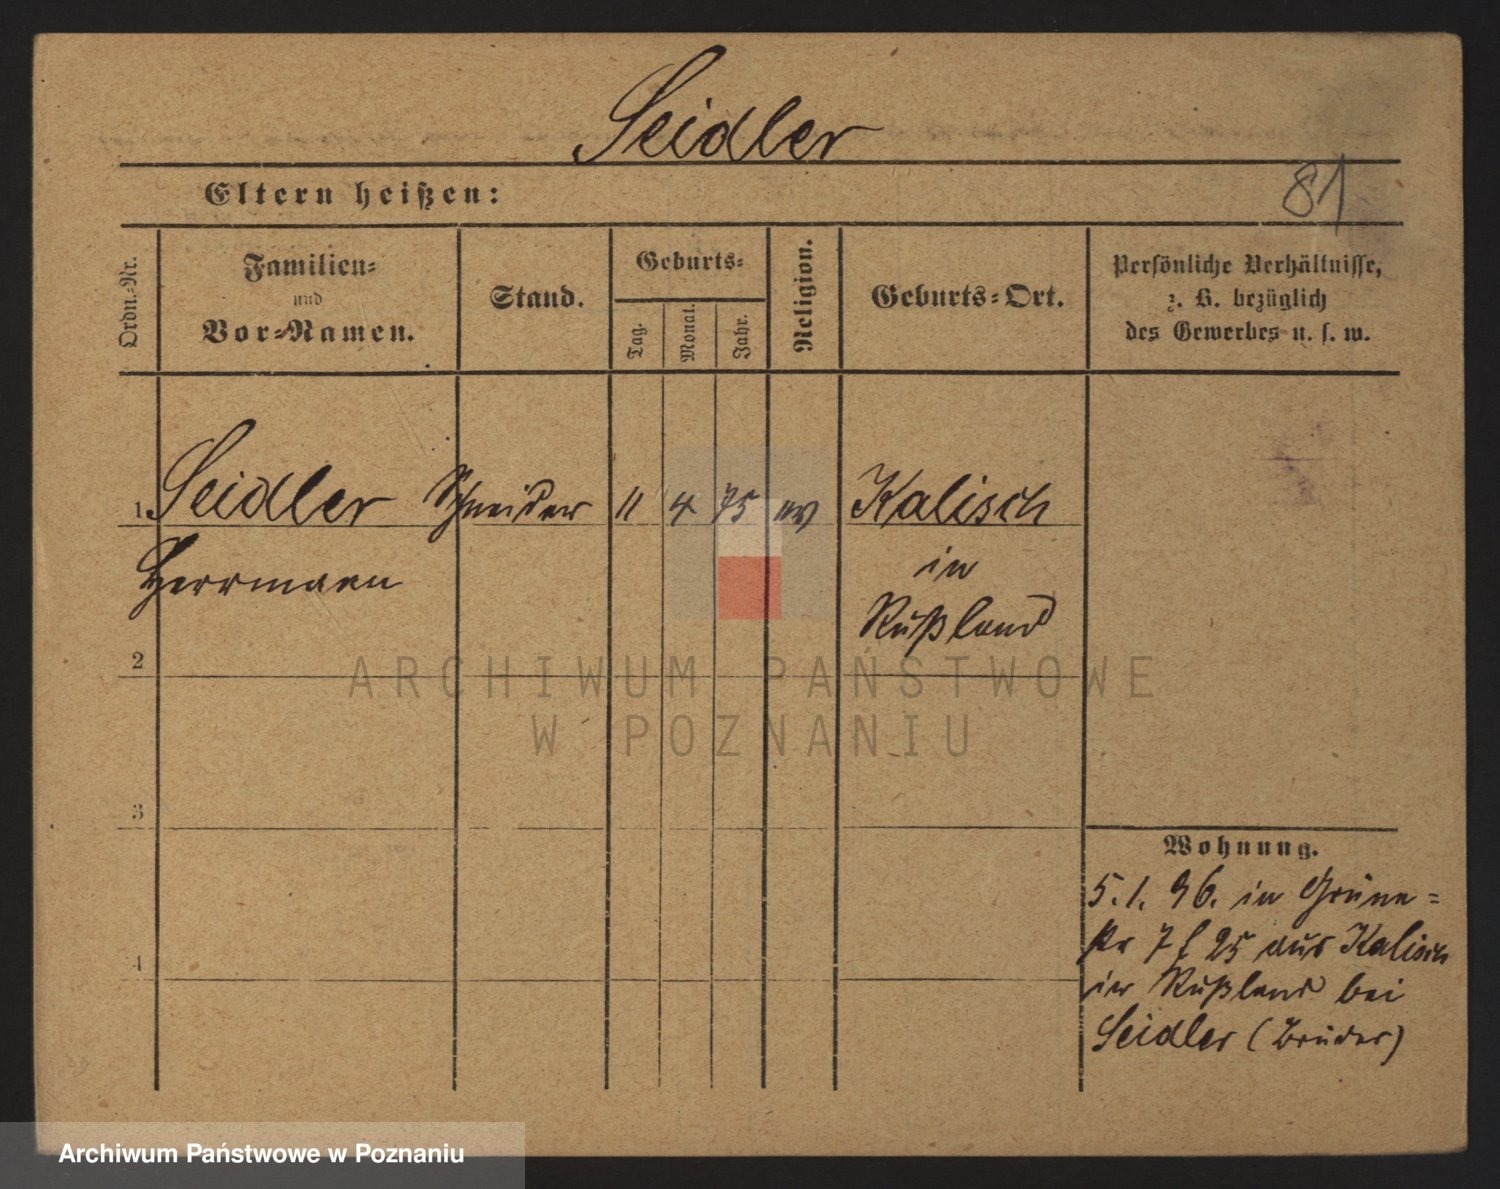 Seidler
Eltern heißen:
81
Ordn.-Nr.
Familien-
und
Vor-Namen.
Stand.
Geburts-
Tag.
Monat.
Jahr.
Religion.
Geburts-Ort.
Persönliche Verhältnisse,
z. B. bezüglich
des Gewerbes u. s. w.
1 Seidler Schneider 11 4 75 ev Kalisch
Herrmann
in
Rußland
2
ARCHIWUM PAŃSTWOWE
W POZNANIU
3
Wohnung.
5.1.96. in Grüne-
7 25 aus Kalisch
4
in Rußland bei
Seidler (Bruder)
Archiwum Państwowe w Poznaniu